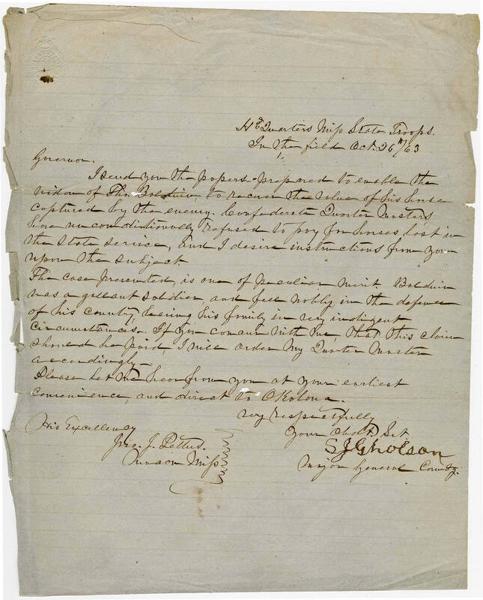 Hd Quarters Miss State Troops.
In the field Oct. 26th /63
Governor.
I send you the papers prepared to enable the
widow of Baldwin to recover the value of his horse
captured by the enemy. Confederate Quarter Masters
have unconditionally refused to pay for horses, lost in
the State service, and I desire instructions from you
upon the subject.
The case presented, is one of peculiar merit. Baldwin
was a gallant soldier, and fell nobly in the defence
of his country leaving his family in very indigent
circumstances. If you concur with me, that this claim
should be paid, I will order my Quarter Master
accordingly.
Please let me hear from you at your earliest
convenience, and direct to Okolona.
Very respectfully
Your Obdt Svt
His Excellency
S J Gholson
Jno. J. Pettus.
Major General Comdg.
Miss